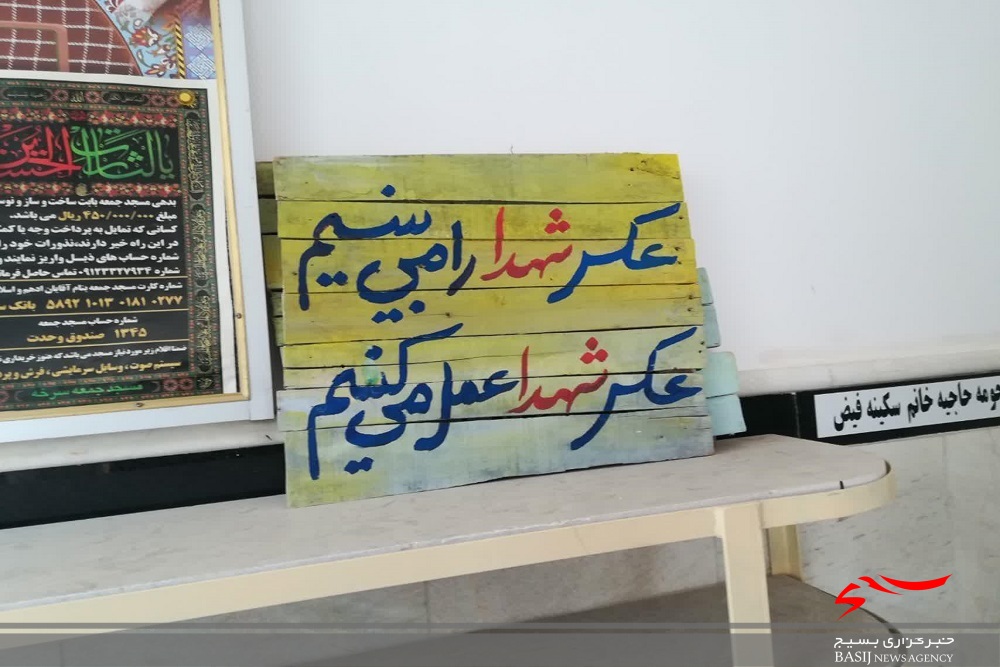 یا لثارات الحسین
بدهی مسجد جمعه بابت ساخت و ساز و
مبلغ ۴۵۰/۰۰۰/۰۰۰ ریال می باشد.
کسانی که تمایل به پرداخت وجه یا
در این راه خیر دارند،نذورات خود را
شماره حساب های ذیل واریز نمایند و
شماره ۰۹۱۲۳۳۲۷۹۳۴ تماس حاصل
شماره کارت مسجد جمعه بنام آقایان ادهم و
شماره حساب مسجد جمعه
۱۳۴۵ صندوق وحدت
ضمنا اقلام زیر مورد نیاز مسجد می باشد که هنوز خریداری
سیستم صوت ، وسایل سرمایشی ، فرش و
مسجد جمعه سرخه
عکس شهدا را می بینیم
عکس شهدا عمل می کنیم
حاجیه خانم سکینه فیض
بسیج
خبرگزاری بسیج
BASIJ NEWS AGENCY